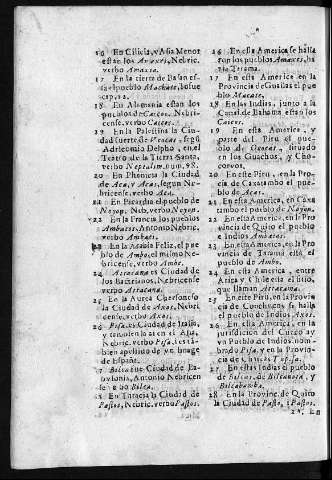 16 En Cilicia, y Asia Menor
estan los Amaxos, Nebric.
verbo Amaxia.
17 En la tierra de Basan es-
ta el pueblo Machate, Iosue
cap. 12.
18 En Alemania estan los
pueblos de Caicos. Nebri-
cense, verbo Caicos.
19 En la Palestina la Ciu-
dad fuerte de segũ
Adricomia Delpho, en el
Teatro de la Tierra Santa,
verbo Neptalim, num. 98.
20 En Phenicia la Ciudad
de Aca, y Acas, segun Ne-
bricense, verbo Aca.
21 En Picardia el pueblo de
Noyon. Neb. verbo Noyon.
22 En la Francia los pueblos
Ambatis. Antonio Nebric.
verbo Ambati.
23 En la Arabia Feliz, el pue-
blo de Ambe, el mismo Ne-
bricense, verbo Ambe.
24 Atracana es Ciudad de
los Bactrianos, Nebricense
verbo Atracana.
25 En la Aurea Chersoneso
la Ciudad de Axos, Nebri-
cense, verbo Axos.
26 Pisa, es Ciudad de Italia,
y tambien la ay en el Asia,
Nebric. verbo Pisa, i es tã-
bien apellido de vn linage
de España.
27 Bilca fue Ciudad de Ba-
bylonia, Antonio Nebricen-
se verbo Bilca.
28 En Taracia la Ciudad de
Pastos, Nebric. verbo Pastos.
16 En esta America se halla
ron los pueblos Amaxes, ha
zia Tarama.
17 En esta America en la
Provincia de Guailas el pue
blo Macate.
18 En las Indias, junto a la
Canal de Bahama estan los
Caicos.
19 En esta America, y
parte del Piru el pue-
blo de situado
en los Guachos, y Cho-
corvos.
20 En este Piru, en la Pro-
vincia de Caxatambo el pue-
blo de Acas.
21 En esta America, en Caxa
tambo el pueblo de Nayon.
22 En esta America, en la Pro
vincia de Quito el pueblo
e Indios Ambatos.
23 En esta America, en la Pro
vincia de Tarama está el
pueblo de Ambo.
24 En esta America, entre
Arica y Chile está el sitio,
que llaman Atacama.
25 En este Piru, en la Provin
cia de Conchucos se halla
el pueblo de Indios Axos.
26 En esta America, en la
jurisdicion del Cuzco ay
vn Pueblo de Indios, nom-
brado Pisa, y en la Provin-
cia de
27 En estas Indias el pueblo
de Bilcas, de Bilcanota, y
Bilcabamba.
28 En la Provinc. de Quito
la Ciudad de Pasto, i Pastos.
29 En